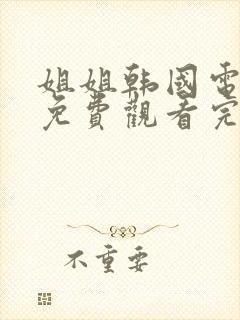 姐姐韩國電
免費觀看完
不重要